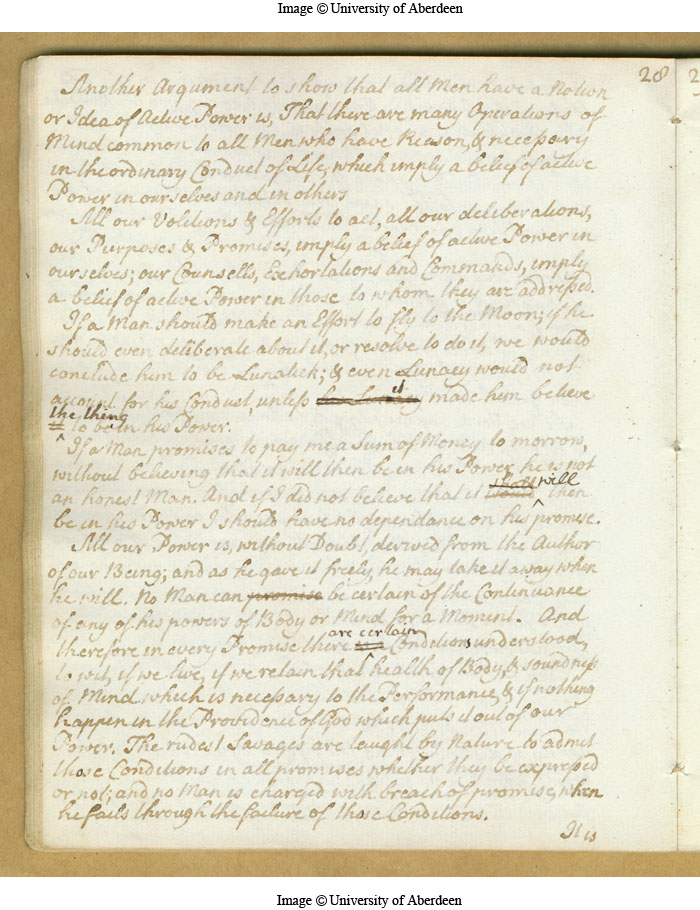 Image © University of Aberdeen
28
Another Argument to show that all Men have a Notion
or Idea of Active Power is, That there are many Operations of
Mind common to all Men who have Reason, & necessary
in the ordinary Conduct of Life, which imply a belief of active
Power in ourselves and in others
All our Volitions & Efforts to act, all our deliberations,
our Purposes & Promises, imply a belief of active Power in
ourselves; our Counsells, Exhortations and Commands, imply
a belief of active Power in those to whom they are addressed.
If a Man should make an Effort to fly to the Moon; if he
should even deliberate about it, or resolve to do it, we would
conclude him to be Lunatick; & even Lunacy would not
it
account for his Conduct, unless his Lunacy made him believe
the thing
to be in his Power.
If a Man promises to pay me a Sum of Money to morrow,
without believing that it will then be in his Power, he is not
shall will
an honest Man. And if I did not believe that it would then
be in his Power I should have no dependance on his promise.
All our Power is, without Doubt, derived from the Author
of our Being; and as he gave it freely, he may take it away when
he will. No Man can promise be certain of the Continuance
of any of his powers of Body or Mind for a Moment. And
are certain
therefore in every Promise there Conditions understood,
to wit, if we live, if we retain that health of Body, & soundness
of Mind which is necessary to the Performance, & if nothing
happen in the Providence of God which puts it out of our
Power. The rudest Savages are taught by Nature to admit
those Conditions in all promises whether they be expressed
or not; and no Man is charged with breach of promise, when
he fails through the failure of those Conditions.
It is
Image © University of Aberdeen